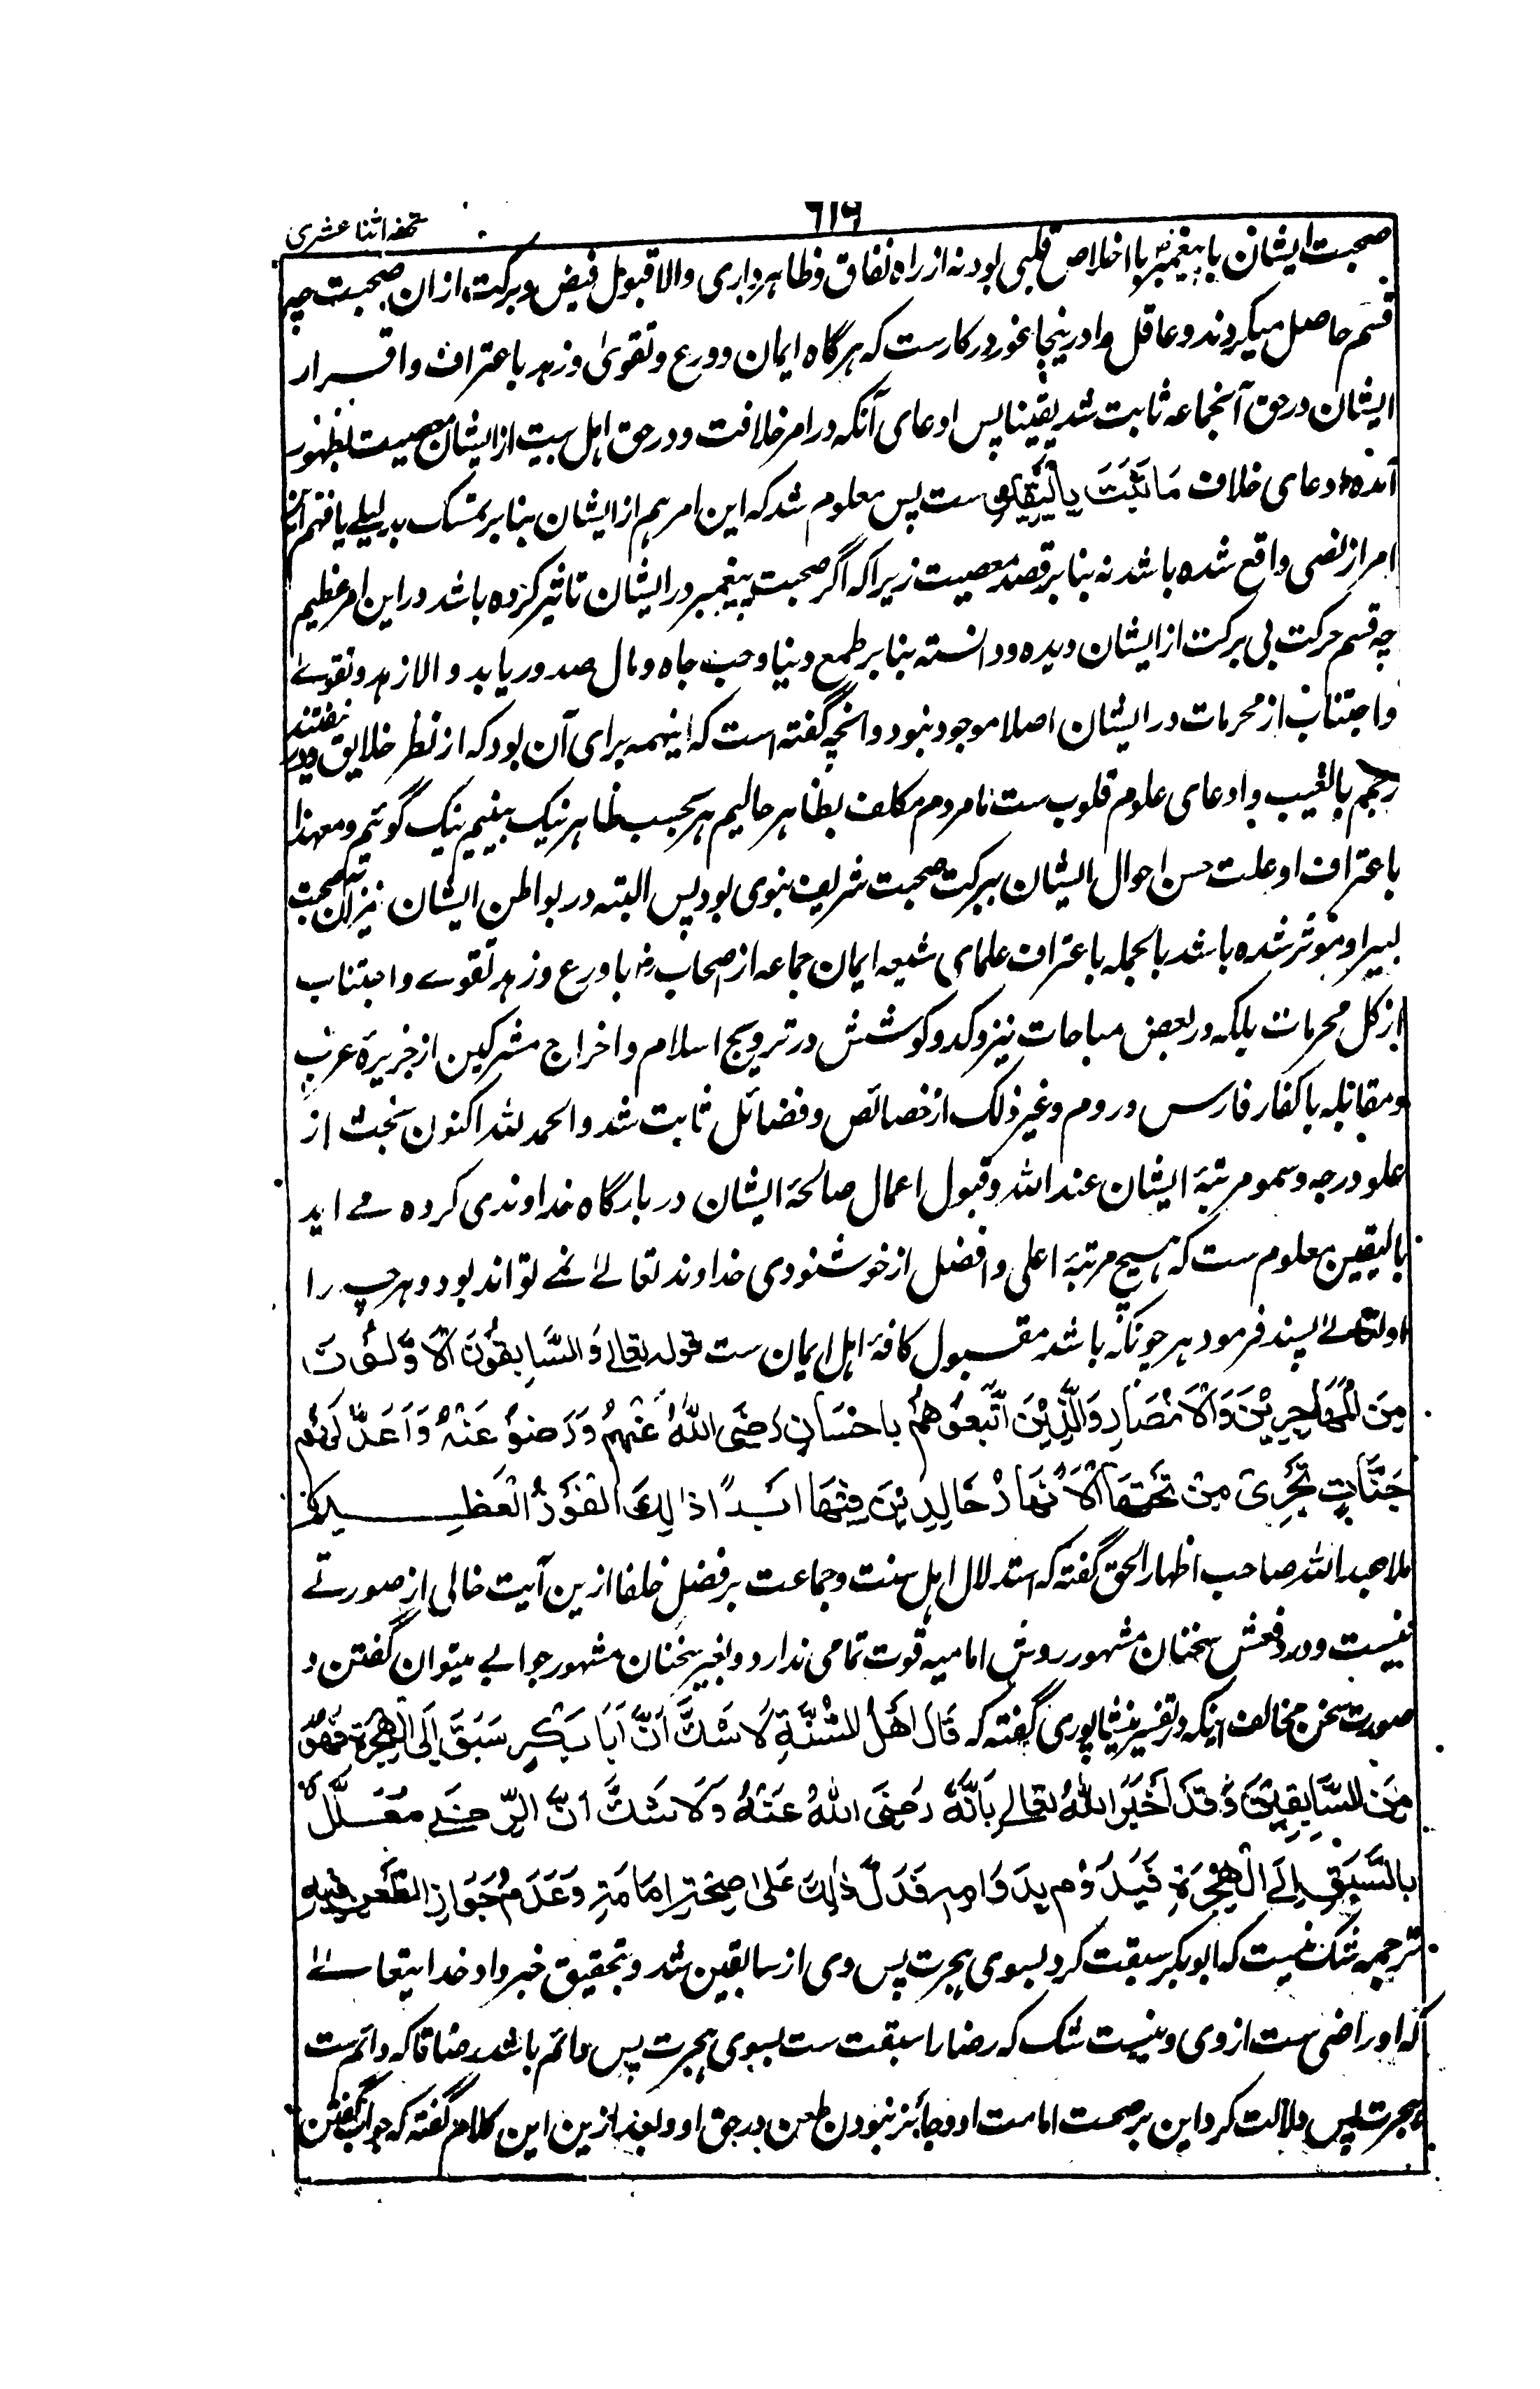 تحفه اثنا عشری
٦١٦
صحبت ایشان با پیغمبرؐ با اخلاص قلبی بود نه از راه نفاق و ظاهر داری والا قبول فیض و برکت ازان صحبت چه
قسم حاصل میکردند و عاقل را درینجا غور در کارست که هرگاه ایمان و ورع و تقویٰ و زهد باعتراف و اقرار
ایشان در حق آنجماعه ثابت شد یقینا پس ادعای آنکه در امر خلافت و در حق اهل بیت از ایشان معصیت بظهور
آمده ادعای خلاف مَا ثَبَتَ بِالْیَقِیْنِ ست پس معلوم شد که این امر هم از ایشان بنا بر تمسک بدلیلے یا فهم آن
امر از نصی واقع شده باشد نه بنا بر قصد معصیت زیرا که اگر صحبت پیغمبر در ایشان تاثیر کرده باشد در این امر عظیم
چه قسم حرکت بی برکت از ایشان دیده و دانسته بنا بر طمع دنیا و حب جاه و مال صدور یابد و الا زهد و تقوے
و اجتناب از محرمات در ایشان اصلا موجود نبود و انچه گفته است که اینهمه برای آن بود که از نظر خلایق نیفتند
رجم بالغیب و ادعای علوم قلوب ست نا مردم مکلف بظاهر حالیم هر بحسب ظاهر نیک بینیم نیک گوئیم و معهذا
باعتراف او علت حسن احوال ایشان ببرکت صحبت شریف نبوی بود پس البته در بواطن ایشان نیز ان صحبت
سراو موثر شده باشد بالجمله باعتراف علمای شیعه ایمان جماعه از صحاب رض با ورع و زهد و تقوے و اجتناب
از کل محرمات بلکه در بعض مباحات نیز و کد و کوشش در ترویج اسلام و اخراج مشرکین از جزیرۀ عرب
و مقابله با کفار فارس و روم و غیر ذلک از خصائص و فضائل ثابت شد والحمد لله اکنون بحث از
علو درجه و سمو مرتبۀ ایشان عند الله و قبول اعمال صالحۀ ایشان در بارگاه خداوندی کرده مے اید
بالیقین معلوم ست که هیچ مرتبۀ اعلی و افضل از خوشنودی خداوند تعالےٰ نمے تواند بود و هر چه را
او تعالےٰ پسند فرمود هر چونکه باشد مقبول کافۀ اهل ایمان ست قوله تعالے وَالسَّابِقُوْنَ الْاَوَّلُوْنَ
مِنَ الْمُهَاجِرِیْنَ وَالْاَنْصَارِ وَالَّذِیْنَ اتَّبَعُوْهُمْ بِاِحْسَانٍ رَضِیَ اللّٰهُ عَنْهُمْ وَرَضُوْا عَنْهُ وَاَعَدَّ لَهُمْ
جَنَّاتٍ تَجْرِیْ مِنْ تَحْتِهَا الْاَنْهَارُ خَالِدِیْنَ فِیْهَا اَبَدًا ذٰلِكَ الْفَوْزُ الْعَظِیْمُ
ملا عبد الله صاحب اظهار الحق گفته که استدلال اهل سنت و جماعت بر فضل خلفا ازین آیت خالی از صورتے
نیست و در دفعش سخنان مشهور روش امامیه قوت تمامی ندارد و بغیر سخنان مشهور جوابے میتوان گفتن و
صورت سخن مخالف اینکه در تفسیر نیشاپوری گفته که قَالَ اَهْلُ السُّنَّةِ لَا شَكَّ اَنَّ اَبَا بَكْرٍ سَبَقَ اِلَی الْهِجْرَةِ فَهُوَ
مِنَ السَّابِقِیْنَ وَقَدْ اَخْبَرَ اللّٰهُ تَعَالٰے بِاَنَّهُ رَضِیَ اللّٰهُ عَنْهُ وَلَا شَكَّ اَنَّ الرِّضٰے مُعَلَّلٌ
بِالسَّبْقِ اِلَے الْهِجْرَةِ فَیَدُوْمُ بِدَوَامِهٖ فَدَلَّ ذٰلِكَ عَلٰی صِحَّةِ اِمَامَتِهٖ وَعَدَمِ جَوَازِ الطَّعْنِ فِیْهِ
ترجمه شک نیست که ابو بکر سبقت کرد بسوی هجرت پس وی از سابقین شد و بتحقیق خبر داد خدایتعالےٰ
که او راضی ست از وی و نیست شک که رضا را سبقت ست بسوی هجرت پس دائم باشد رضا تا که دائم ست
هجرت پس دلالت کرد این بر صحت امامت او و جائز نبودن طعن در حق او و بعد ازین این کلام گفته که جواب گفتن